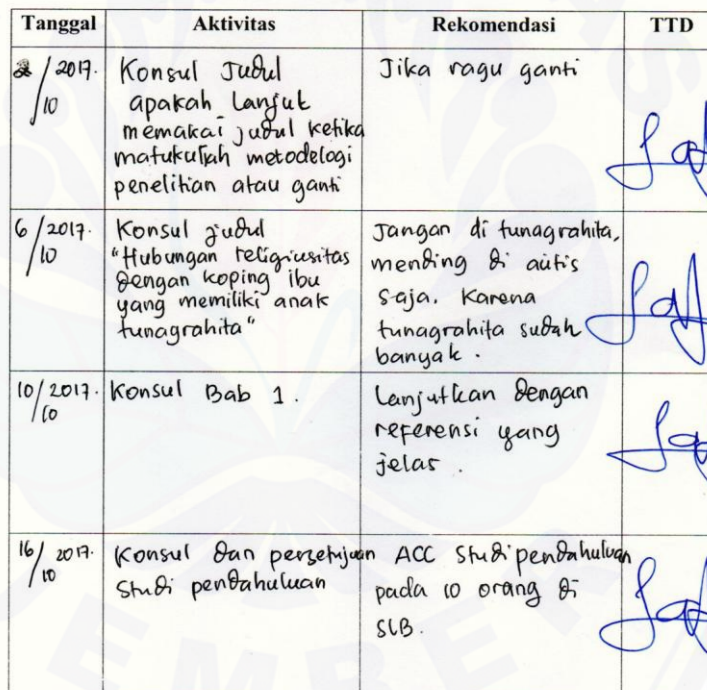 Tanggal Aktivitas Rekomendasi TTD
2/10 2017.
Konsul Judul
apakah Lanjut
memakai judul ketika
matukuliah metodelogi
penelitian atau ganti
Jika ragu ganti
6/10 2017.
Konsul judul
"Hubungan religiusitas
dengan koping ibu
yang memiliki anak
tunagrahita"
Jangan di tunagrahita,
mending di autis
saja. Karena
tunagrahita sudah
banyak.
10/10 2017.
Konsul Bab 1.
Lanjutkan dengan
referensi yang
jelas.
16/10 2017.
Konsul dan persetujuan
Studi pendahuluan
ACC Studi pendahuluan
pada 10 orang di
SLB.